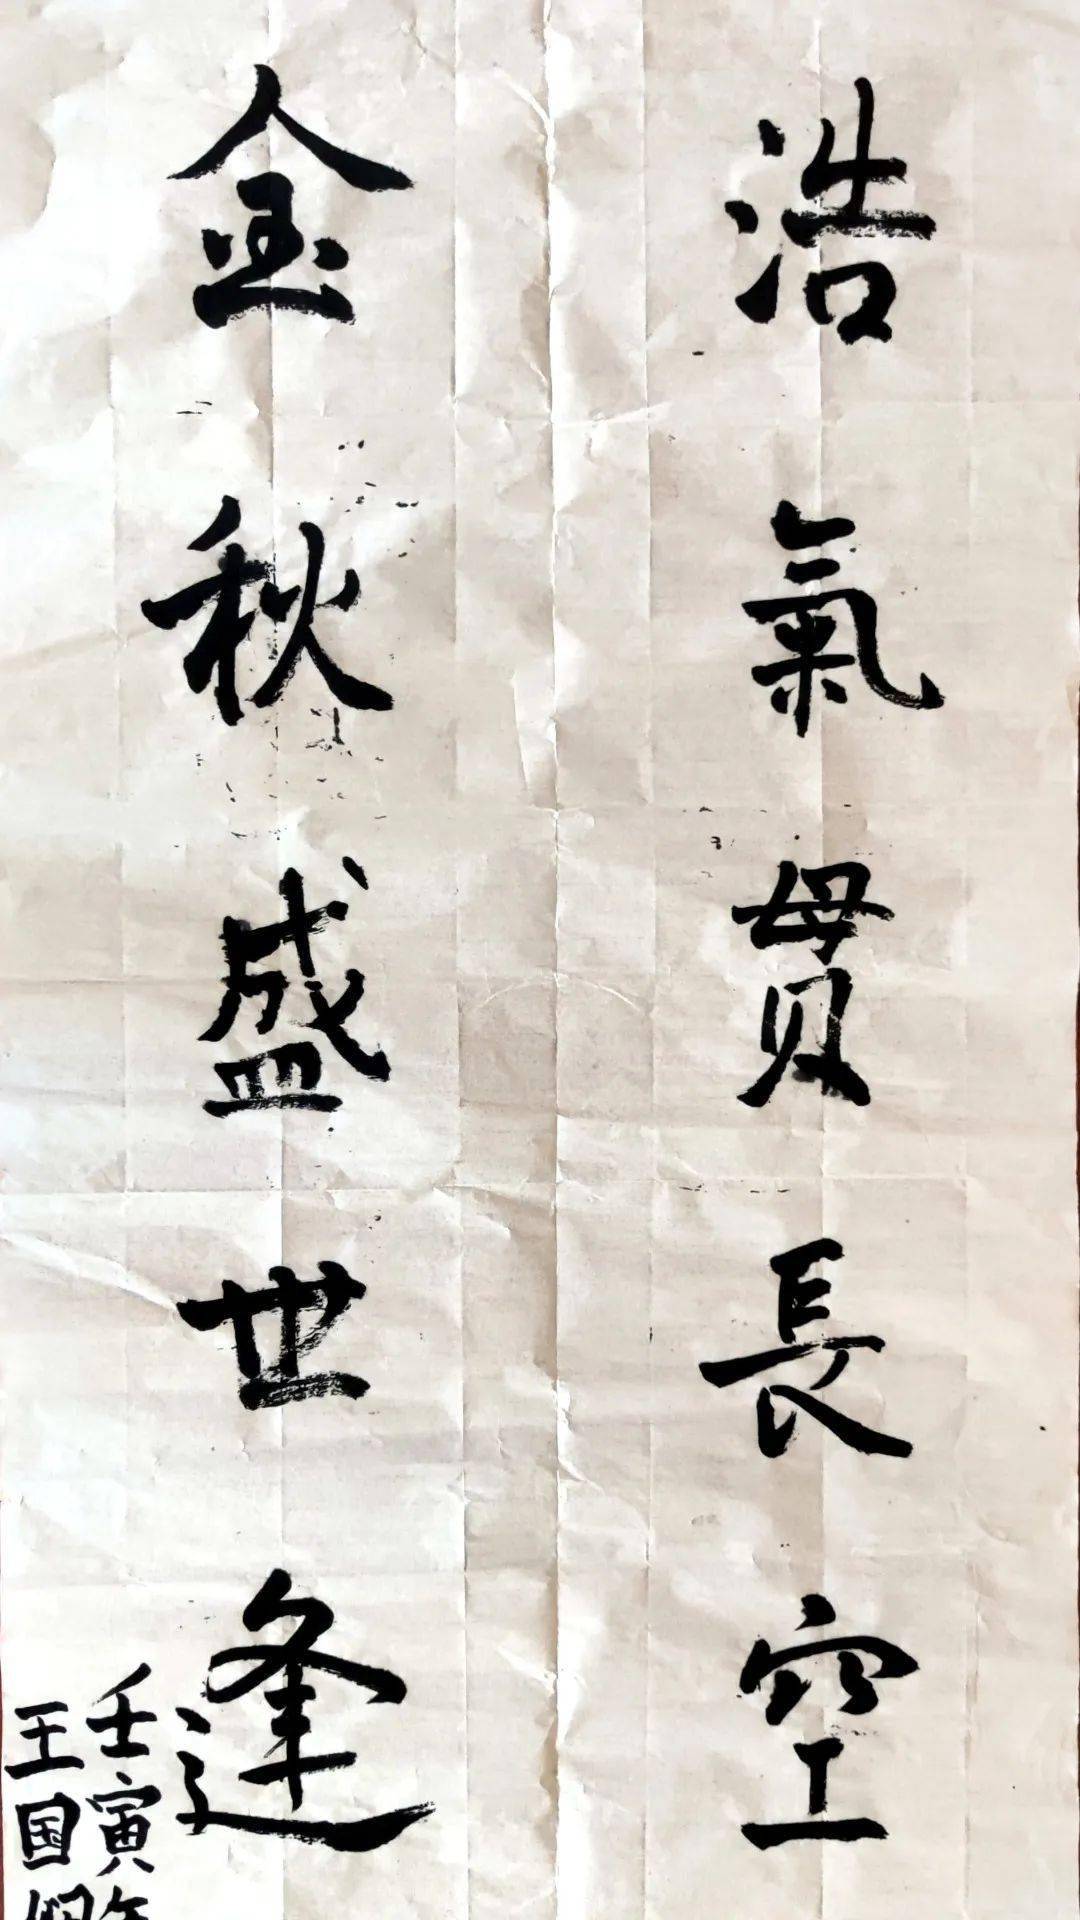 浩氣贯長空
金秋盛世逢
壬寅年
王国